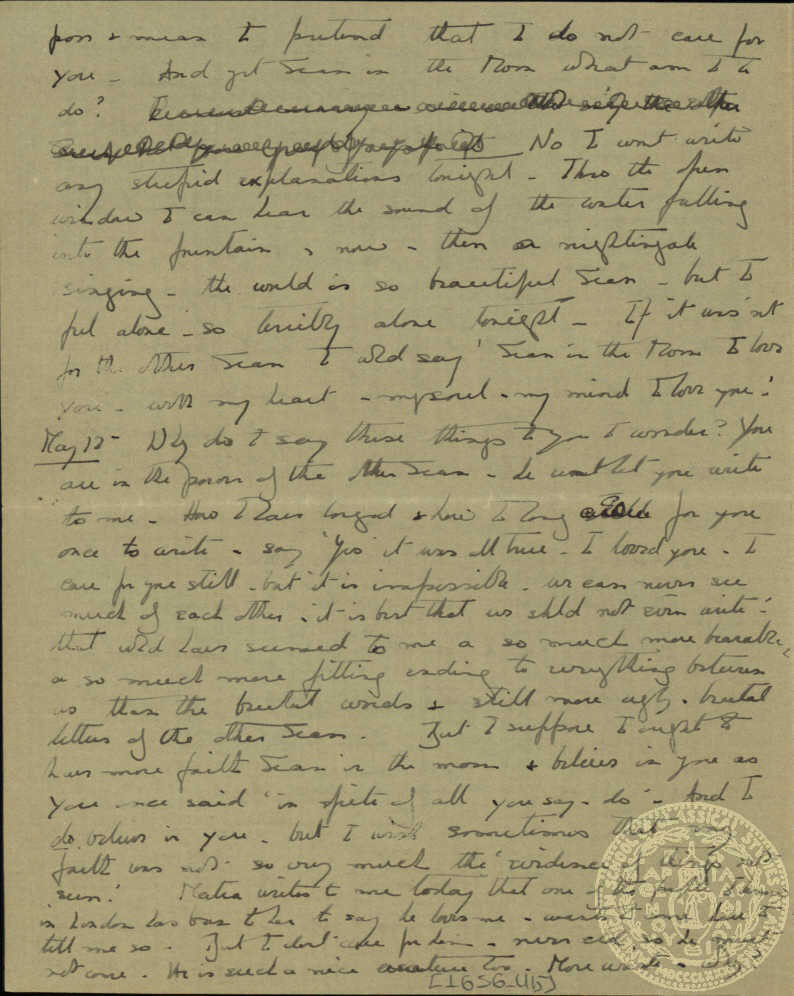 poor & mean to pretend that I do not care for
you - And yet Sean in the Moon what am I to
do?
No I wont write
any stupid explanations tonight - Thro the open
window I can hear the sound of the water falling
into the fountain & now - then a nightingale
singing - the world is so beautiful Sean - but I
feel alone - so terribly alone tonight - If it was'nt
for the other Sean I wld say 'Sean in the Moon I love
you - with my heart - my soul - my mind I love you.'
May 12 - Why do I say these things to you I wonder? You
are in the power of the other Sean - he wont let you write
to me - How I have longed & how I long for you
once to write - say 'Yes it was all true - I loved you - I
care for you still - but it is impossible - we can never see
much of each other - it is best that we shld not even write'
that wld have seemed to me a so much more bearable,
a so much more fitting ending to everything between
us than the brutal words & still more ugly - brutal
letters of the other Sean. But I suppose I ought to
have more faith Sean in the moon & believe in you as
you once said 'in spite of all you say - do' - And I
do believe in you - but I wish sometimes that my
faith was not so very much the 'evidence of things not
seen.' writes to me today that one of the
in London has been to her to say he loves me - wants to come here to
tell me so - But I dont care for him - never cld, so he must
not come. He is such a nice creature too.
[1656-11b]